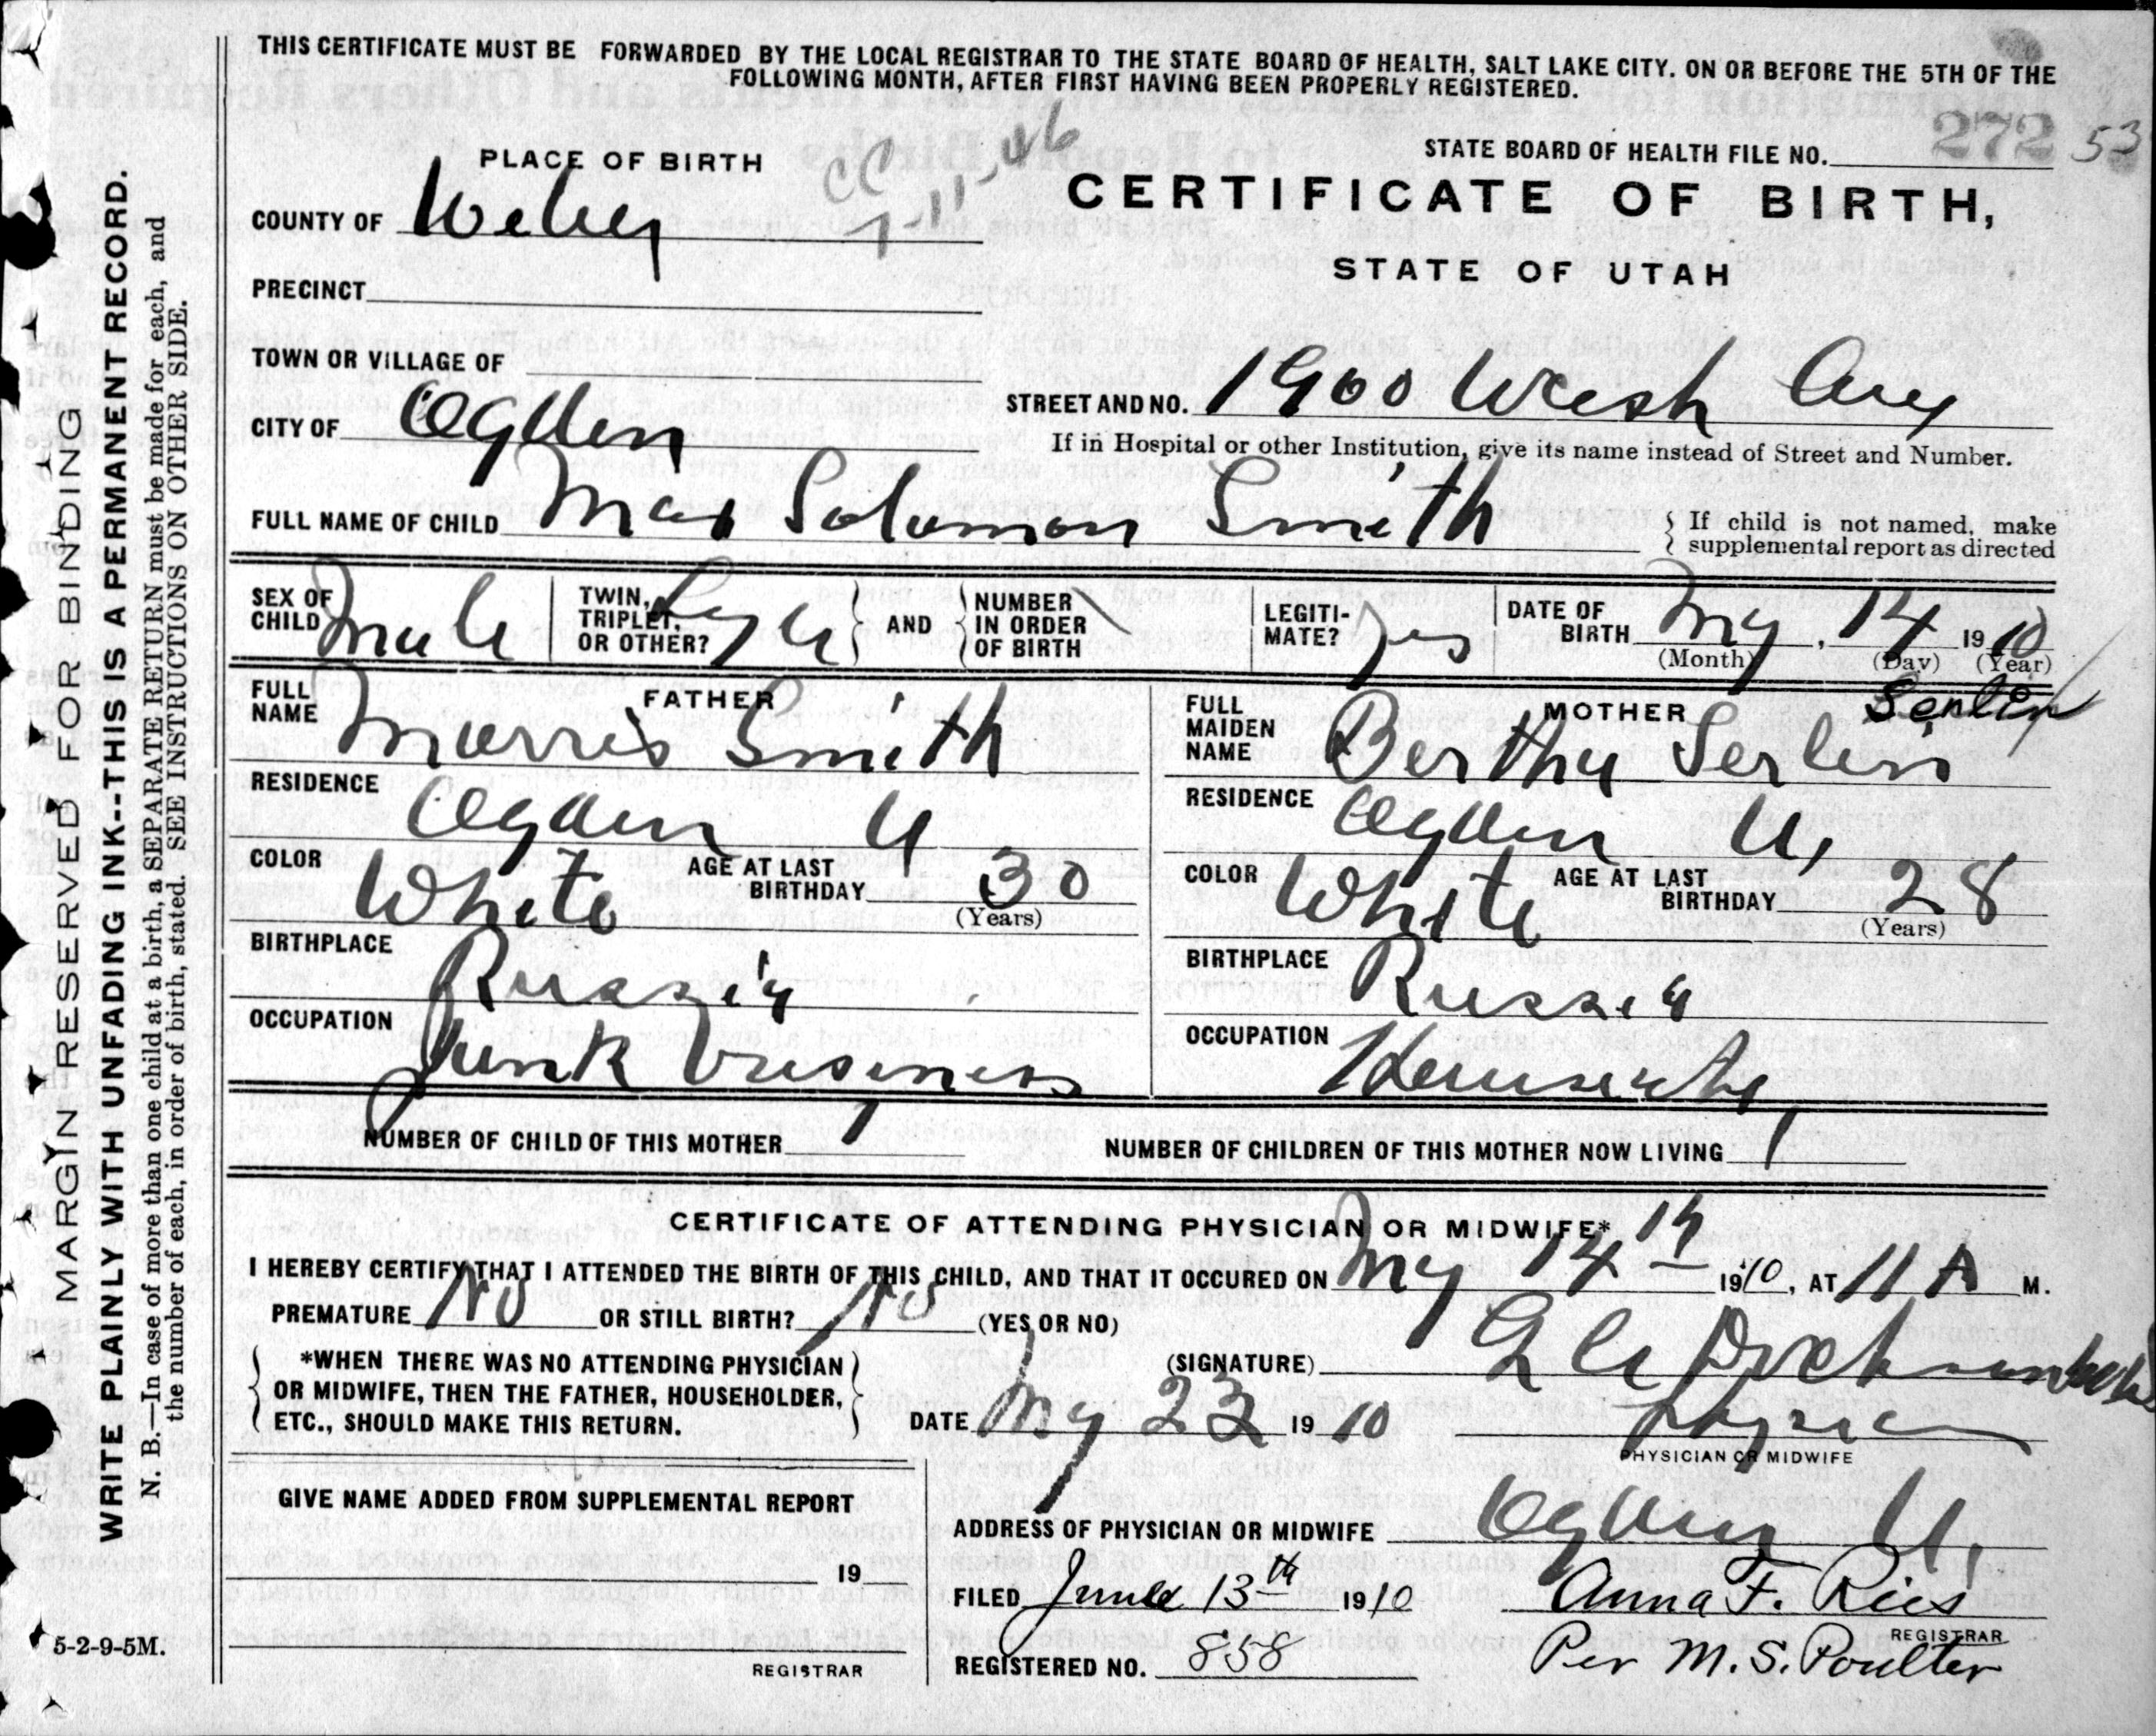 THIS CERTIFICATE MUST BE FORWARDED BY THE LOCAL REGISTRAR TO THE STATE BOARD OF HEALTH, SALT LAKE CITY. ON OR BEFORE THE 5TH OF THE
FOLLOWING MONTH, AFTER FIRST HAVING BEEN PROPERLY REGISTERED.
MARGIN RESERVED FOR BINDING
WRITE PLAINLY WITH UNFADING INK--THIS IS A PERMANENT RECORD.
N. B.—In case of more than one child at a birth, a SEPARATE RETURN must be made for each, and
the number of each, in order of birth, stated. SEE INSTRUCTIONS ON OTHER SIDE.
STATE BOARD OF HEALTH FILE NO. 272 53
PLACE OF BIRTH
CC 7-11-46
CERTIFICATE OF BIRTH,
STATE OF UTAH
COUNTY OF Weber
PRECINCT
TOWN OR VILLAGE OF
CITY OF Ogden
STREET AND NO. 1900 Wash Ave
If in Hospital or other Institution, give its name instead of Street and Number.
FULL NAME OF CHILD Max Solomon Smith
{ If child is not named, make
supplemental report as directed
SEX OF CHILD Male
TWIN, TRIPLET, OR OTHER?
AND
NUMBER IN ORDER OF BIRTH
LEGITI-MATE? Yes
DATE OF BIRTH May, 14 1910
(Month) (Day) (Year)
FATHER
FULL NAME Morris Smith
RESIDENCE Ogden U
COLOR White AGE AT LAST BIRTHDAY 30
(Years)
BIRTHPLACE Russia
OCCUPATION Junk business
MOTHER
FULL MAIDEN NAME Bertha Serlin
Serlin
RESIDENCE Ogden U,
COLOR White AGE AT LAST BIRTHDAY 28
(Years)
BIRTHPLACE Russia
OCCUPATION Housewife
NUMBER OF CHILD OF THIS MOTHER 1
NUMBER OF CHILDREN OF THIS MOTHER NOW LIVING 1
CERTIFICATE OF ATTENDING PHYSICIAN OR MIDWIFE*
I HEREBY CERTIFY THAT I ATTENDED THE BIRTH OF THIS CHILD, AND THAT IT OCCURED ON May 14th 1910, AT 11 A M.
PREMATURE No OR STILL BIRTH? No (YES OR NO)
*WHEN THERE WAS NO ATTENDING PHYSICIAN
OR MIDWIFE, THEN THE FATHER, HOUSEHOLDER,
ETC., SHOULD MAKE THIS RETURN.
(SIGNATURE)
DATE May 23 1910
Physician
PHYSICIAN OR MIDWIFE
GIVE NAME ADDED FROM SUPPLEMENTAL REPORT
19
REGISTRAR
ADDRESS OF PHYSICIAN OR MIDWIFE Ogden U,
FILED June 13th 1910 Anna F. Ries
REGISTRAR
REGISTERED NO. 858 Per M. S. Poulter
5-2-9-5M.